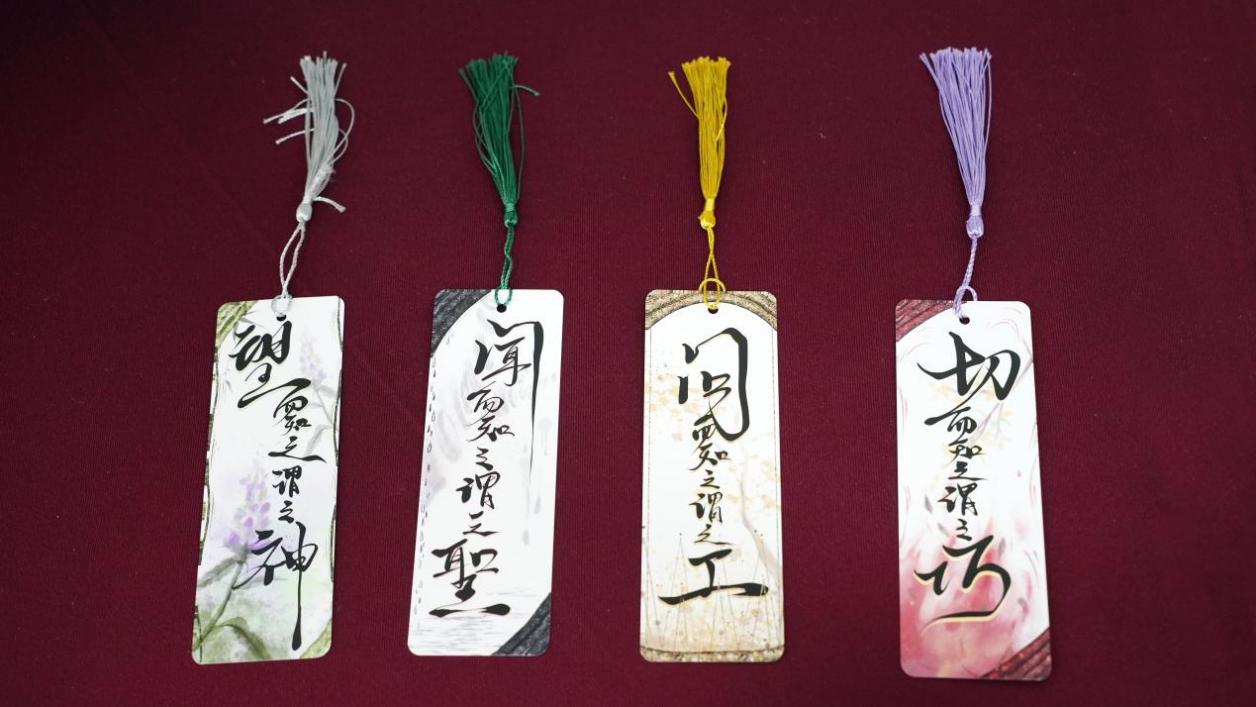 望而知之谓之神
闻而知之谓之聖
问而知之谓之工
切而知之谓之巧